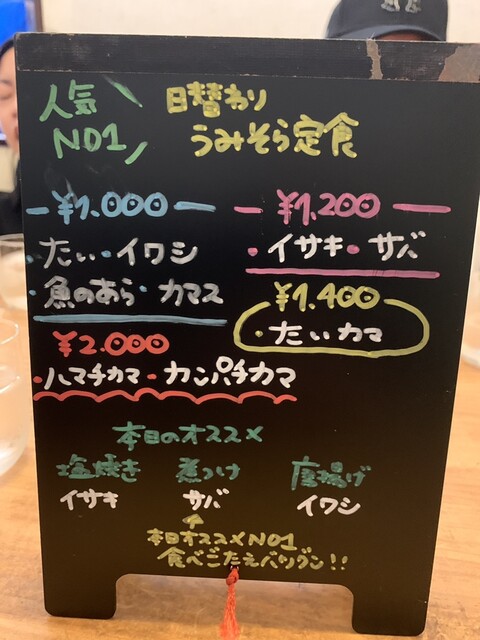 人気
NO1
日替わり
うみそら定食
¥1.000
・たい・イワシ
・魚のあら・カマス
¥1,200
・イサキ・サバ
¥1.400
・たいカマ
¥2.000
・ハマチカマ・カンパチカマ
本日のオススメ
塩焼き 煮つけ 唐揚げ
イサキ サバ イワシ
本日オススメNO1
食べごたえバツグン!!